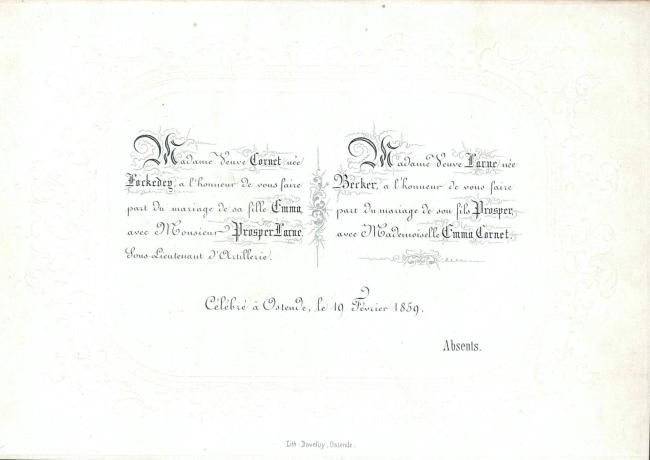 Madame Veuve Cornet, née
Fockedey, a l'honneur de vous faire
part du mariage de sa fille Emma,
avec Monsieur Prosper Larue,
Sous-Lieutenant d'Artillerie.
Madame Veuve Larue née
Becker, a l'honneur de vous faire
part du mariage de son fils Prosper,
avec Mademoiselle Emma Cornet.
Célébré à Ostende, le 19 Février 1859.
Absents.
Lith. Daveluy, Ostende.